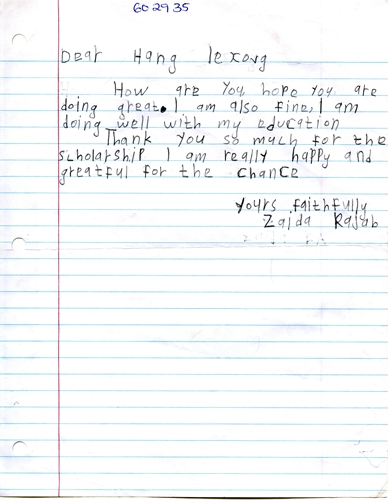 60 29 35
Dear Hang lexong
How are you hope you are
doing great. I am also fine, I am
doing well with my education
Thank you so much for the
scholarship I am really happy and
greatful for the chance
yours faithfully
Zaida Rajab